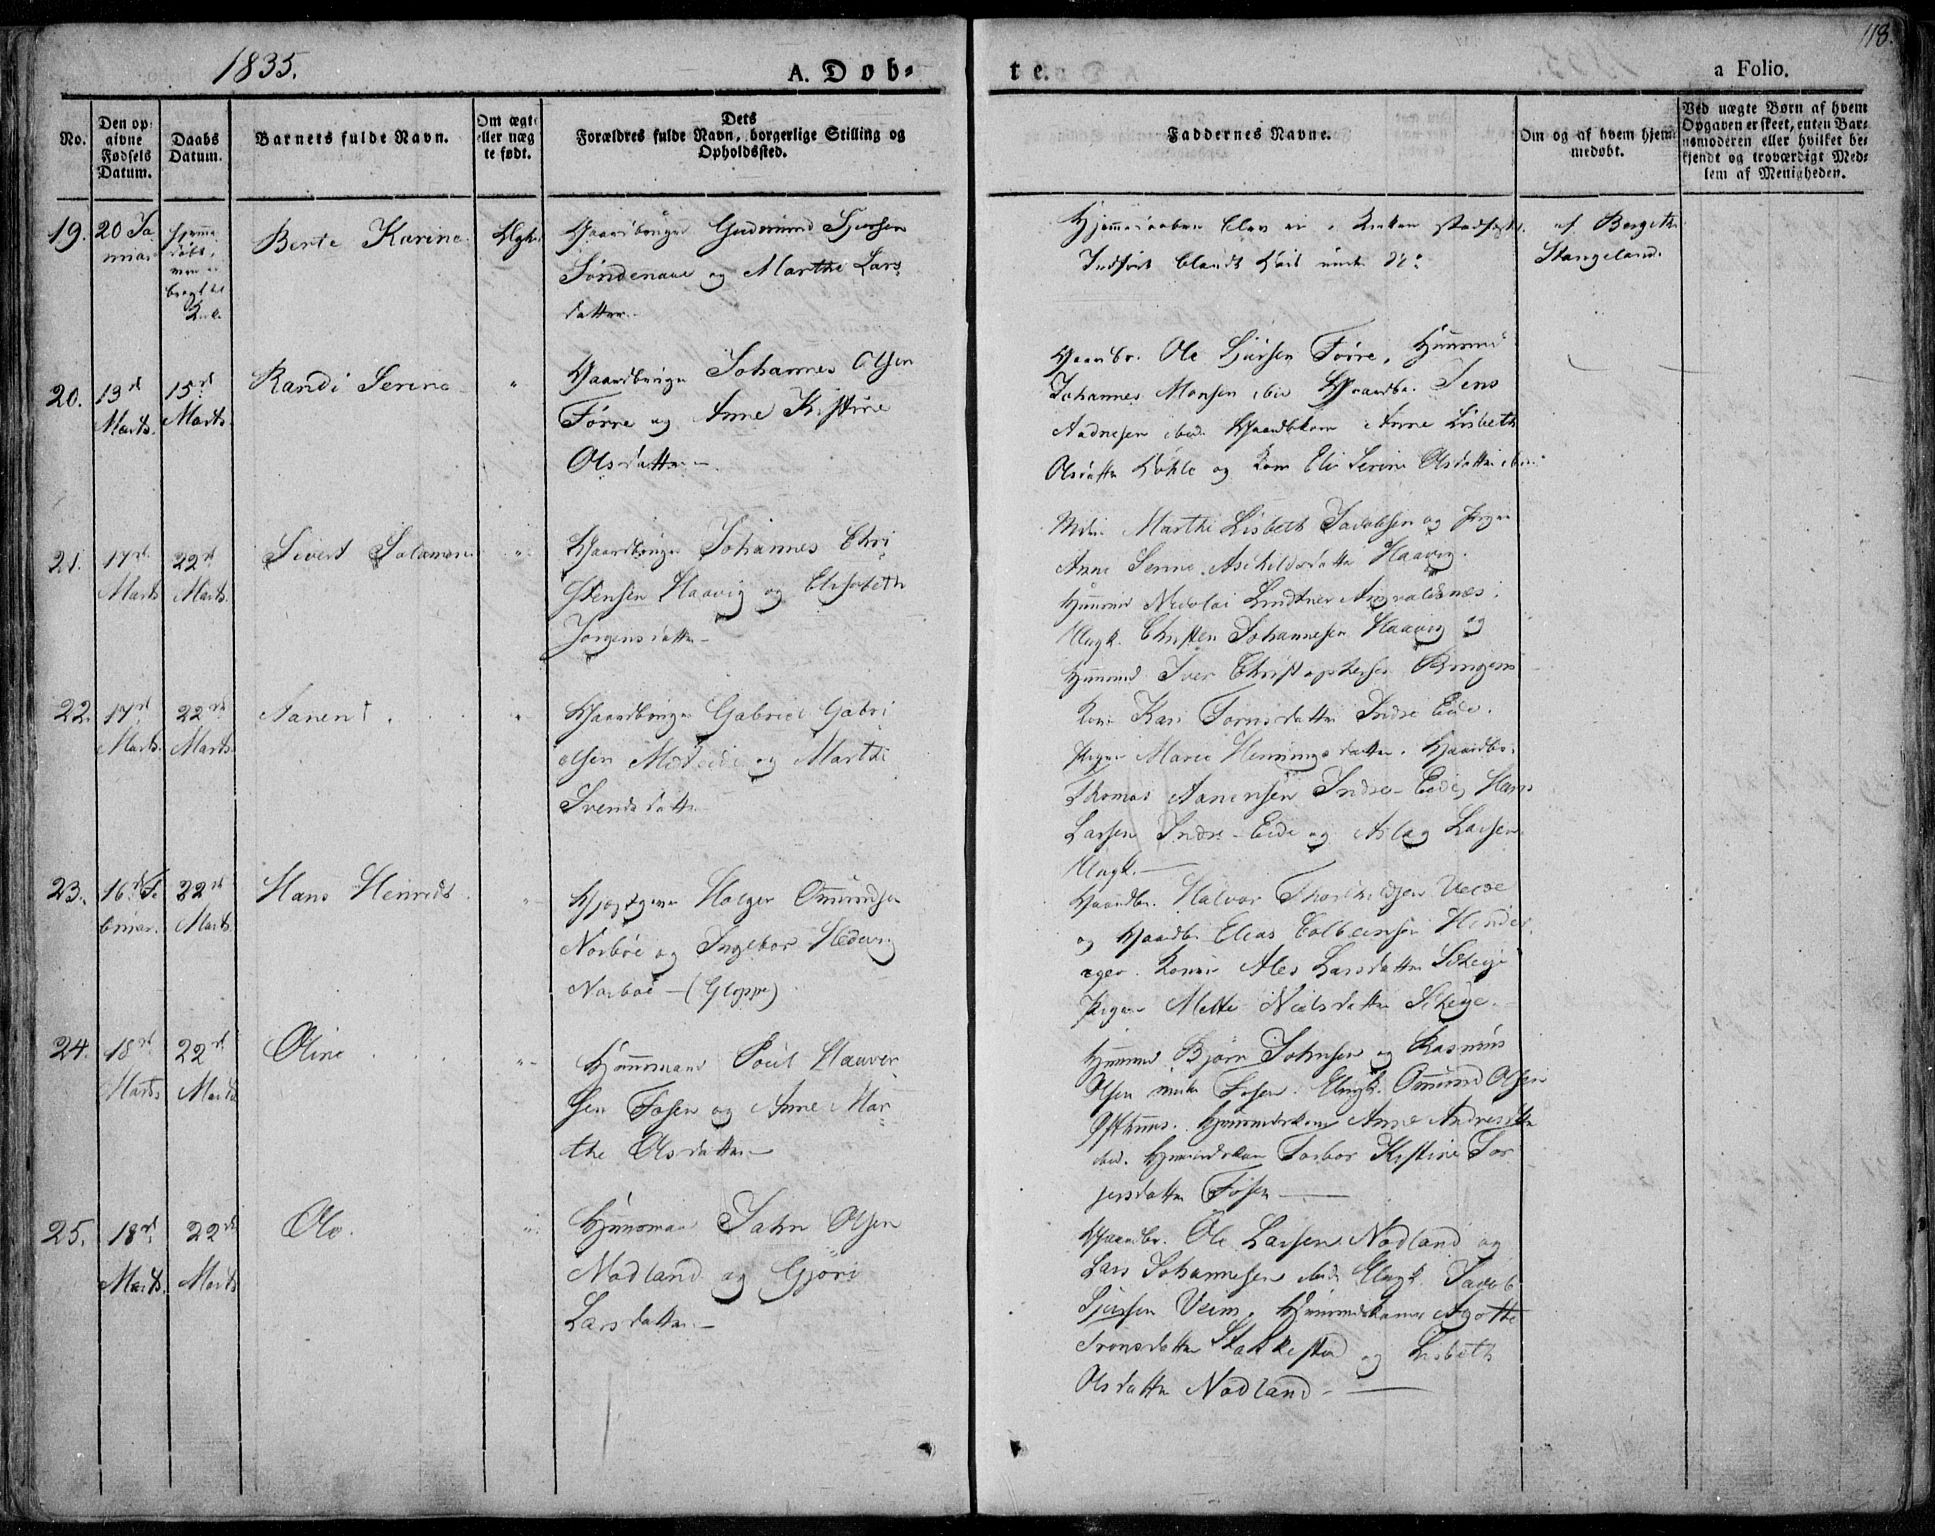 1835.
A. Döb-
te.
118.
a Folio.
No.
Den op-
givne
Fødsels
Datum.
Daabs
Datum.
Barnets fulde Navn.
Om ægte
eller uæg
te født.
Dets
Forældres fulde Navn, borgerlige Stilling og
Opholdssted.
Faddernes Navne.
Om og af hvem hjem-
medøbt.
Ved uægte Børn af hvem
Opgaven er skeet, enten Bar-
nemoderen eller hvilket be-
kjendt og troværdigt Med-
lem af Menigheden.
19.
20 Ja
nuar
hjemme
døbt,
men ei
bragt til
Kirke
Berte Karine
Ægte
Gaardbruger Gudmund Tjersen
Søndenaae og Marthe Lars
datter
Hjemmedaaben blev ei i Kirken stadfæstet.
Indført blandt
af Bergithe
Stangeland.
20.
13d
Marts.
15d
Marts.
Randi Serine
"
Gaardbruger Johannes Olsen
Førre og Anne Kistine
Olsdatter
Gaardbr. Ole Tjersen Førre, Huusmd
Johannes Monsen ibid Gaardbr. Jens
Aadnesen ibid. Gaardbkone Anne Lisbeth
Olsdatter og Kone Eli Serine Olsdatter ibid
21.
17d
Marts
22d
Marts.
Sivert Salamon
"
Gaardbruger Johannes Chri
stensen Haavig og Elisabeth
Jørgensdatter
Marthe Lisbeth Jacobsen og Pigen
Anne Serine Askildsdatter Haavig.
Huusmd Nicolai Lindtner Augvaldsnæs.
Ungk. Christen Johannesen Haavig og
Huusmd Iver Christophersen Bringens
22.
17d
Marts.
22d
Marts.
Aanent
"
Gaardbruger Gabriel Gabri
elsen Misteide og Marthe
Svendsdatter
Kone Kari Tornsdatter Indre Eide.
Pigen Maren Henningsdatter. Gaardbr.
Thomas Aanensen Indre-Eide, Hans
Larsen Indre-Eide og Aslag Larsen
Ungk.
23.
16d Fe
bruar.
22d
Marts
Hans Henrich
"
Gjæstgiver Holger Omundsen
Norbøe og Ingebor Hedevig
Norboe – (Gloppe)
Gaardbr. Halvor Thorkildsen
og Gaardbr. Elias Colbeensen Hinder
ager. Konen Ales Larsdatter Skeije
Pigen Mette Nielsdatter Skeije.
24.
18d
Marts
22d
Marts
Oline
"
Huusmand Poul Haaver
sen Fosen og Anne Mar
the Olsdatter
Huusmd Bjørn Johnsen og Rasmus
Olsen Fosen. Ungk. Omund Olsen
Østhuus. Huusmdskone Anne Andersdtr
ibid. Huusmdskone Torbor Kistine Tor
jersdatter Fosen
25.
18d
Marts.
22d
Marts
Ole.
"
Huusmand John Olsen
Nodland og Gjøri
Larsdatter
Gaardbr. Ole Larsen Nodland og
Lars Johannesen ibid. Ungk. Jacob
Tjersen Veim. Huusmdskonen Agotte
Tronsdatter Stakkestad og Lisbeth
Olsdatter Nodland